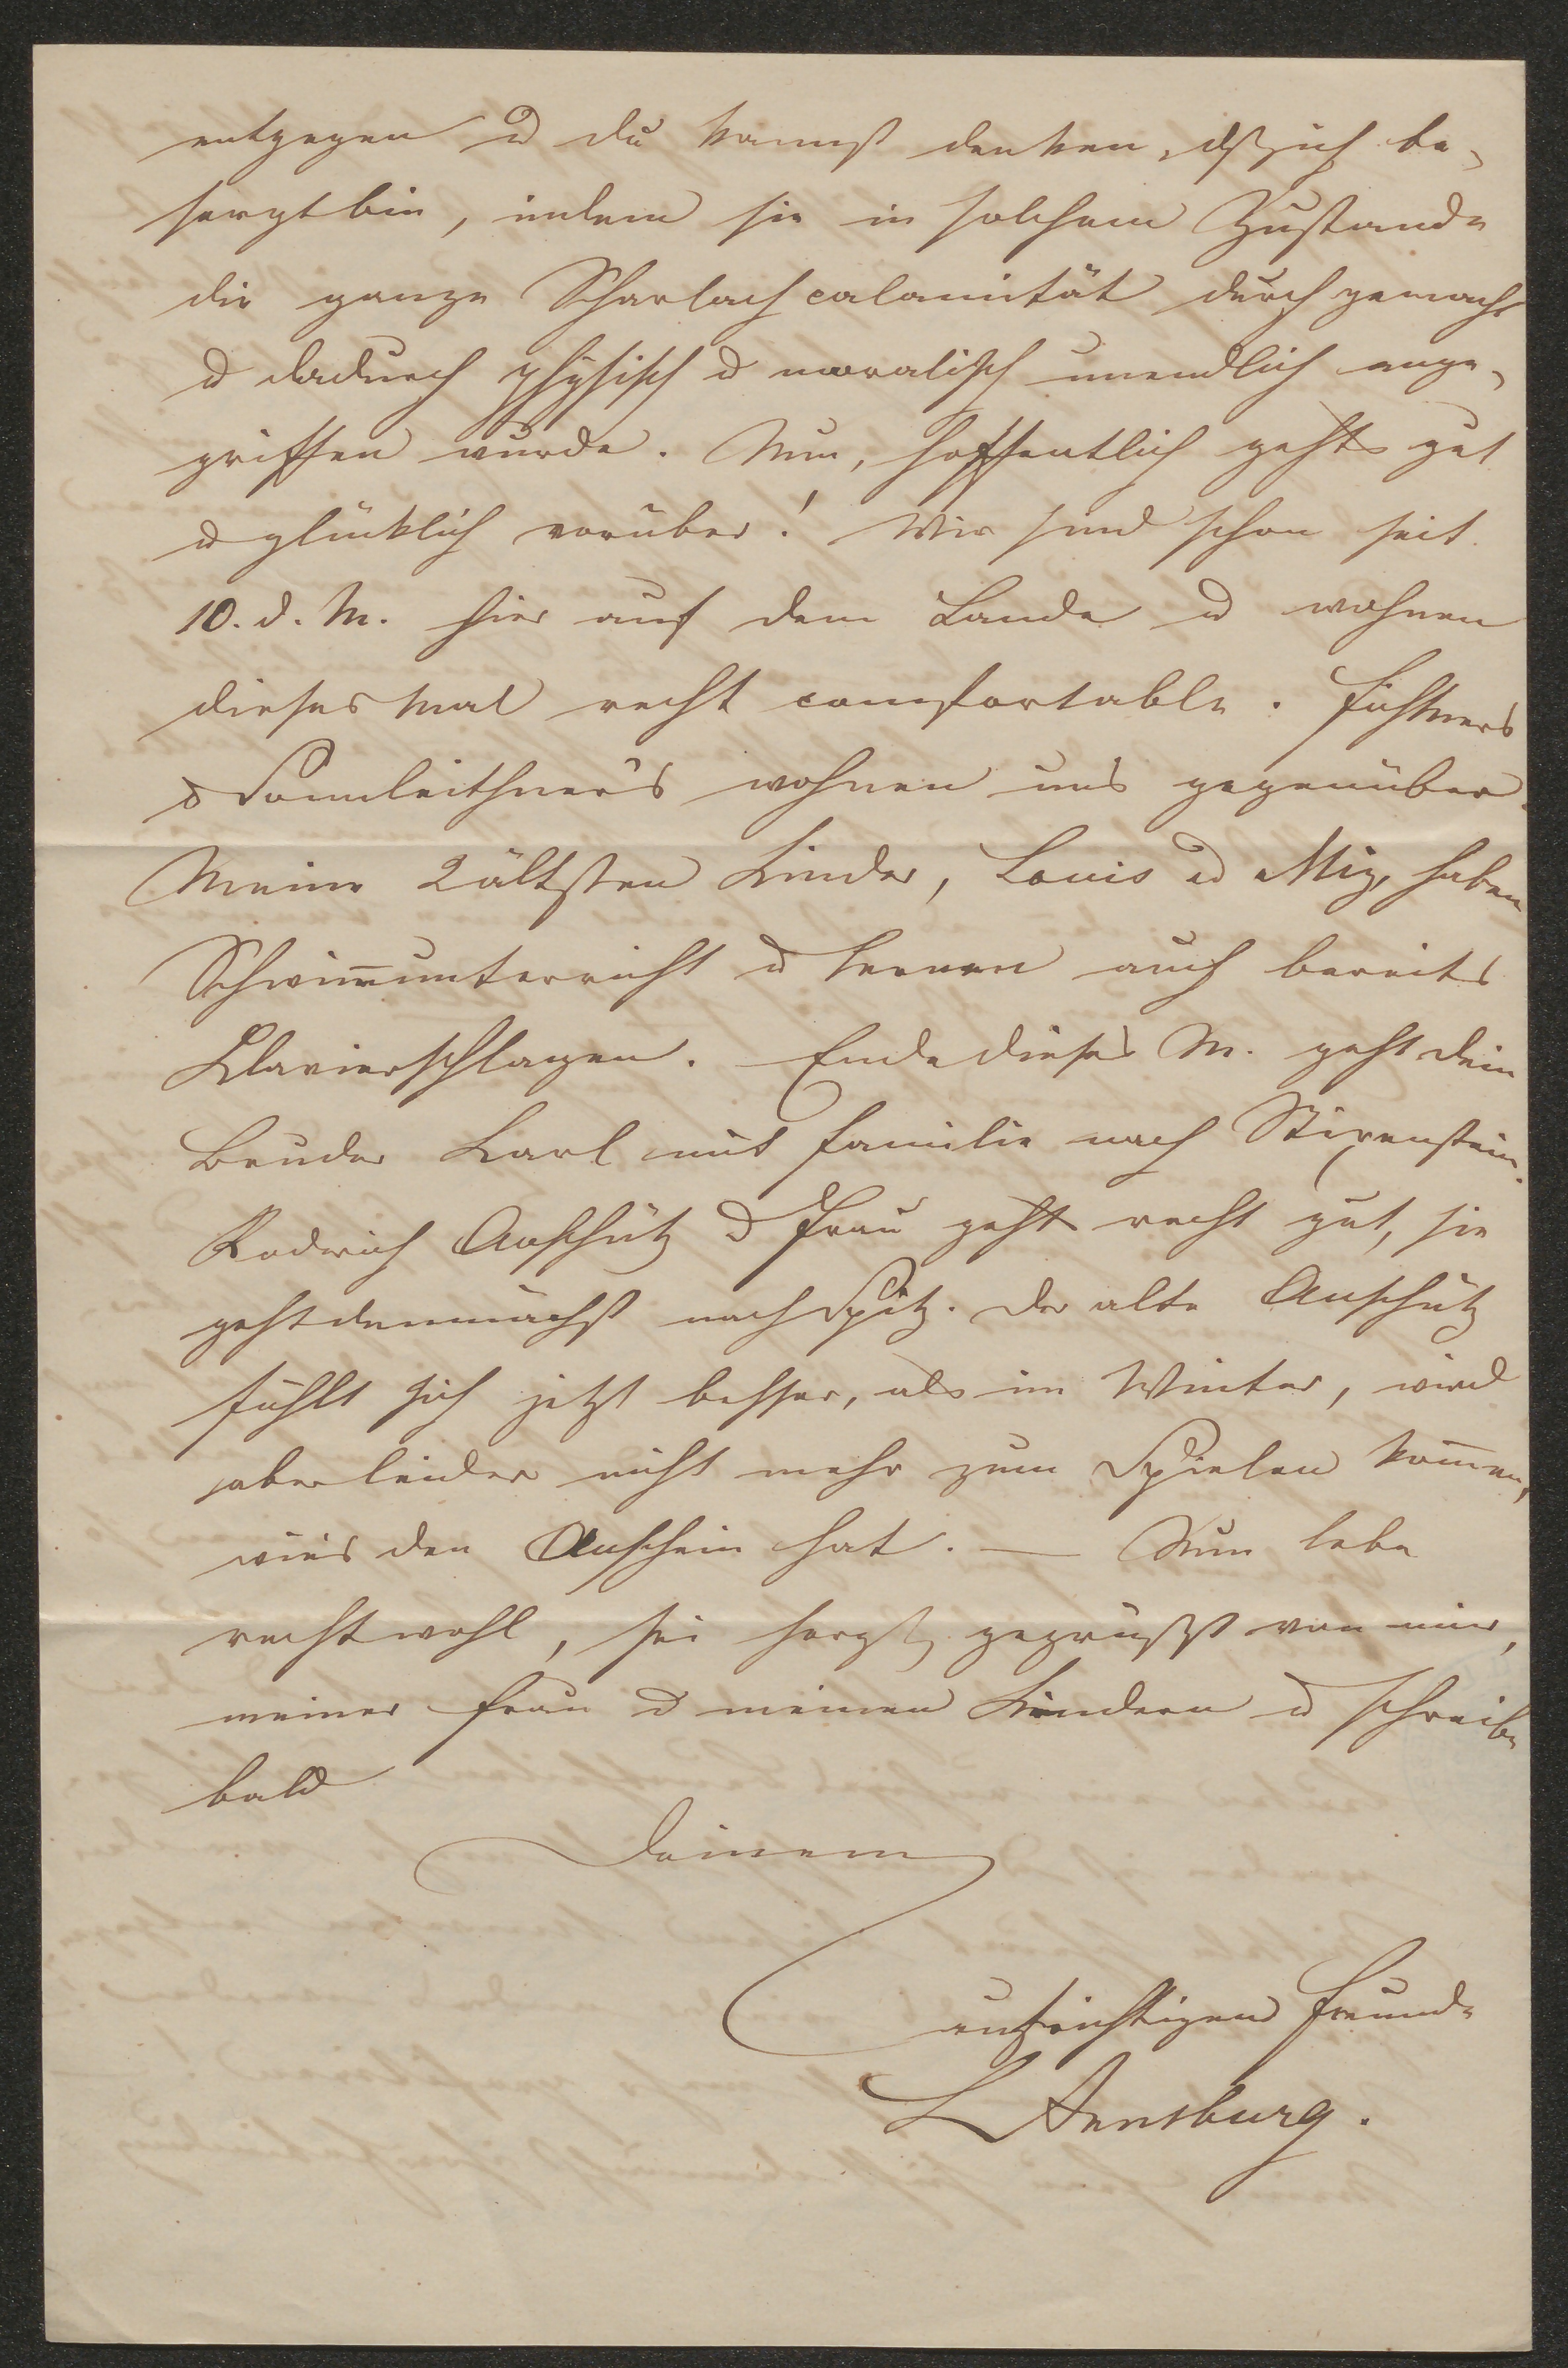 entgegen u du kannst denken, dß ich be-
sorgt bin, indem sie in solchem Zustande
die ganze Scharlachcalamität durchgemacht
u dadurch physisch u moralisch unendlich ange-
griffen wurde. Nun, hoffentlich gehts gut
u glücklich vorüber! Wir sind schon seit
10. d. M. hier auf dem Lande u wohnen
dieses Mal recht comfortable. Fichtners
u Sonnleithner's wohnen uns gegenüber.
Meine 2 ältsten Kinder, Louis u Miz, haben
Schwim̅unterricht u lernen auch bereits
Clavierschlagen. Ende dieses M. geht dein
Bruder Karl mit Familie nach Stixenstein.
Rodrich Anschütz u Frau geht recht gut, sie
geht demnächst nach Spitz. Der alte Anschütz
fühlt sich jetzt besser, als im Winter, wird
aber leider nicht mehr zum Spielen kom̅en,
wie's den Anschein hat. — Nun lebe
recht wohl, sei herzl. gegrüßt von mir,
meiner Frau u meinen Kindern u schreibe
bald
Deinem
aufrichtigen Freunde
L Arnsburg.